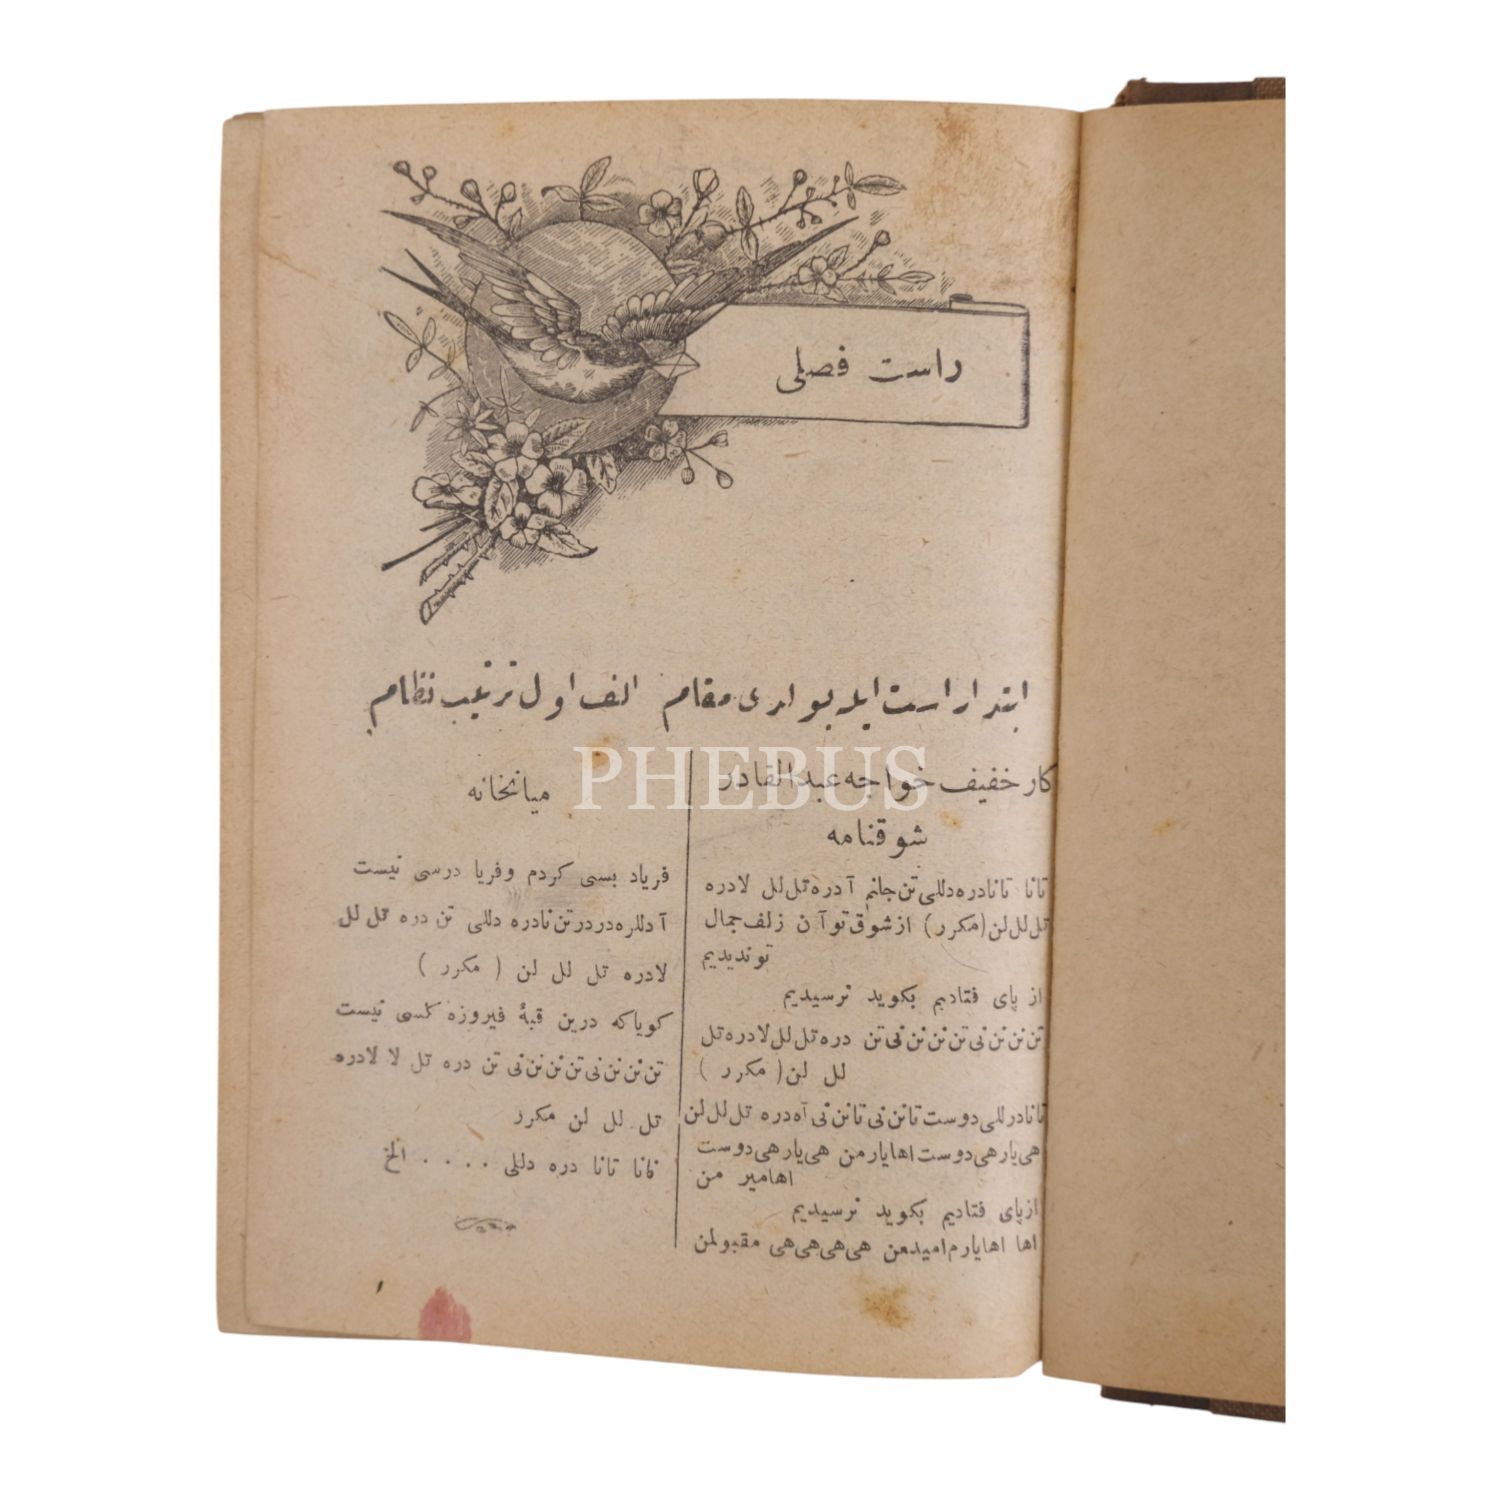 راست فصلی
ابتدا راست ایله بولدی مقام الف اول ترتیب نظام
PHEBUS
کار خفیف خواجه عبدالقادر
شوقنامه
تانا تانادره دللی تن جانم آ دره تل لل لادره
تل لل لن (مکرر) از شوق تو آن زلف جمال
تو ندیدیم
از پای فتادیم بکوید نرسیدیم
تن نن نن نی تن نن نن نی تن دره تل لل لادره تل
لل لن (مکرر)
تانادر للی دوست تانن نی تانن نی آه دره تل لل لن
هی یار هی دوست اها یار من هی یار هی دوست
اها میر من
از پای فتادیم بکوید نرسیدیم
اها اها یارم امیدمن هی هی هی هی مقبولمن
میانخانه
فریاد بسی کردم و فریا درسی نیست
آ دللره در در تن نادره دللی تن دره تل لل
لادره تل لل لن (مکرر)
کویا که درین قبهٔ فیروزه کسی نیست
تن نن نن نی تن نن نن نی تن دره تل لا لادره
تل لل لن مکرر
تانا تانا دره دللی .... الخ